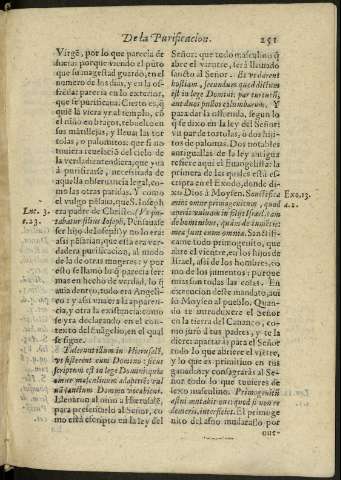 De la Purificacion. 251
Virgē, por lo que parecia de
fuera: porque viendo el puro
que su magestad guardó, en el
numero de los dias, y en la of-
frēda: parecia en lo exterior,
que se purificaua. Cierto es, q̄
quiē la viera yr al templo, cō
el niño en braços, rebuelto en
sus mātillejas, y lleuar las tor-
tolas, o palominos: que si no
tuuiera reuelaciō del cielo de
la verdad
a purificarse, necessitada de
aquella obseruancia legal, co-
mo las otras paridas. Y como
el vulgo pēsaua, que S. Ioseph
Luc. 3. era padre de Christo:
c. 23. tabatur filius Ioseph, Pensauase
ser hijo de Ioseph) y no lo era:
assi pēsarian, que esta era ver-
dadera purificacion, al modo
de la de otras mugeres: y por
esto se llamo lo q̄ parecia ser:
mas en hecho de verdad, lo q̄
auia dentro, todo era Angeli-
co: y assi vna era la aparen-
cia, y otra la existencia: como
se yra declarando en el con-
texto del Euāgelio, en el qual
se sigue.
Tulerunt illum in Hierusalē,
vt sisterent eum Domino: sicut
scriptum est in lege Domini: quia
omne masculinum adaperiēs vul
uā sanctum Domino vocabitur.
Lleuaron al niño a Hierusalē,
para presentarlo al Señor, co
mo está escripto en la ley del
Señor: que todo masculino q̄
abre el vientre, será llamado
sancto al Señor. Et vt darent
hostiam, secundum quod dictum
est in lege Domini: par turturū,
aut duos pullos columbarum. Y
para dar la offrenda, segun lo
q̄ se dixo en la ley del Señor
vn par de tortolas, o dos hiji-
tos de palomas. Dos notables
antiguallas de la ley antigua
refiere aqui el Euangelista: la
primera de las quales está es-
cripta en el Exodo, donde di-
xo Dios à Moysen. Sanctifica Exo. 13.
mihi omne primogenitum, quod a. 2.
aperit vuluam in filijs Israel, tam
de hominibus, quàm de iumētis:
mea sunt enim omnia. Sanctifi-
came todo primogenito, que
abre el vientre, en los hijos de
Israel, assi de los hombres, co
mo de los jumentos: porque
mias son todas las cosas. En
execucion deste mandato, aui
so Moysen al pueblo. Quan-
do te introduxere el Señor
en la tierra del Cananeo, co-
mo juró a tus padres; y te la
diere: apartarás para el Señor
todo lo que abriere el viētre,
y lo que es primitiuo en tus
ganados: y consagrarás al Se-
ñor todo lo que tuuieres de
sexo masculino. Primogenitū
asini mutabis oue: quod si non re
demeris, interficies. El primoge
nito del asno mudarás por
oue-